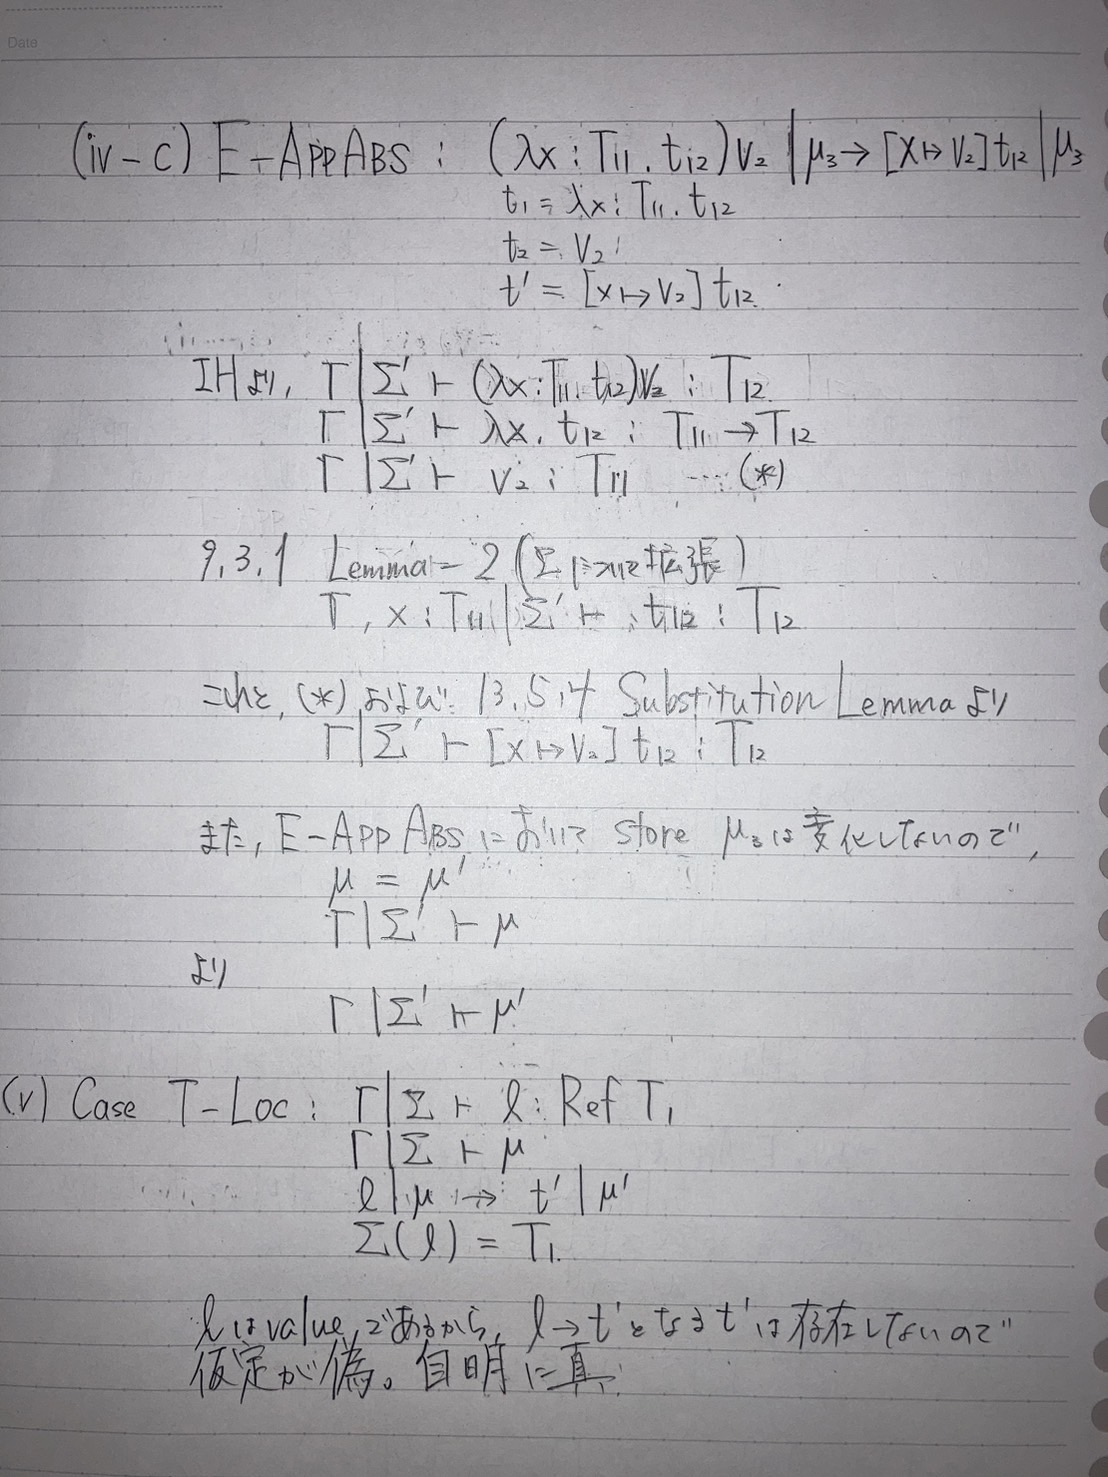 Date
(iv-c) E-APPABS : (λx:T11.t12)v2 | μ3 → [x↦v2]t12 | μ3
t1 = λx:T11.t12
t2 = v2
t' = [x↦v2]t12
IHより, Γ|Σ' ⊢ (λx:T11.t12)v2 : T12
Γ|Σ' ⊢ λx.t12 : T11→T12
Γ|Σ' ⊢ v2 : T11 ... (*)
9.3.1 Lemma-2 (Σについて拡張)
Γ, x:T11|Σ' ⊢ t12 : T12
これと, (*) および 13.5.4 Substitution Lemma より
Γ|Σ' ⊢ [x↦v2]t12 : T12
また, E-APPABS において store μ3は変化しないので,
μ = μ'
Γ|Σ' ⊢ μ
より
Γ|Σ' ⊢ μ'
(v) Case T-LOC : Γ|Σ ⊢ l : Ref T1
Γ|Σ ⊢ μ
l|μ → t'|μ'
Σ(l) = T1
lはvalueであるから, l→t'となるt'は存在しないので
仮定が偽。自明に真